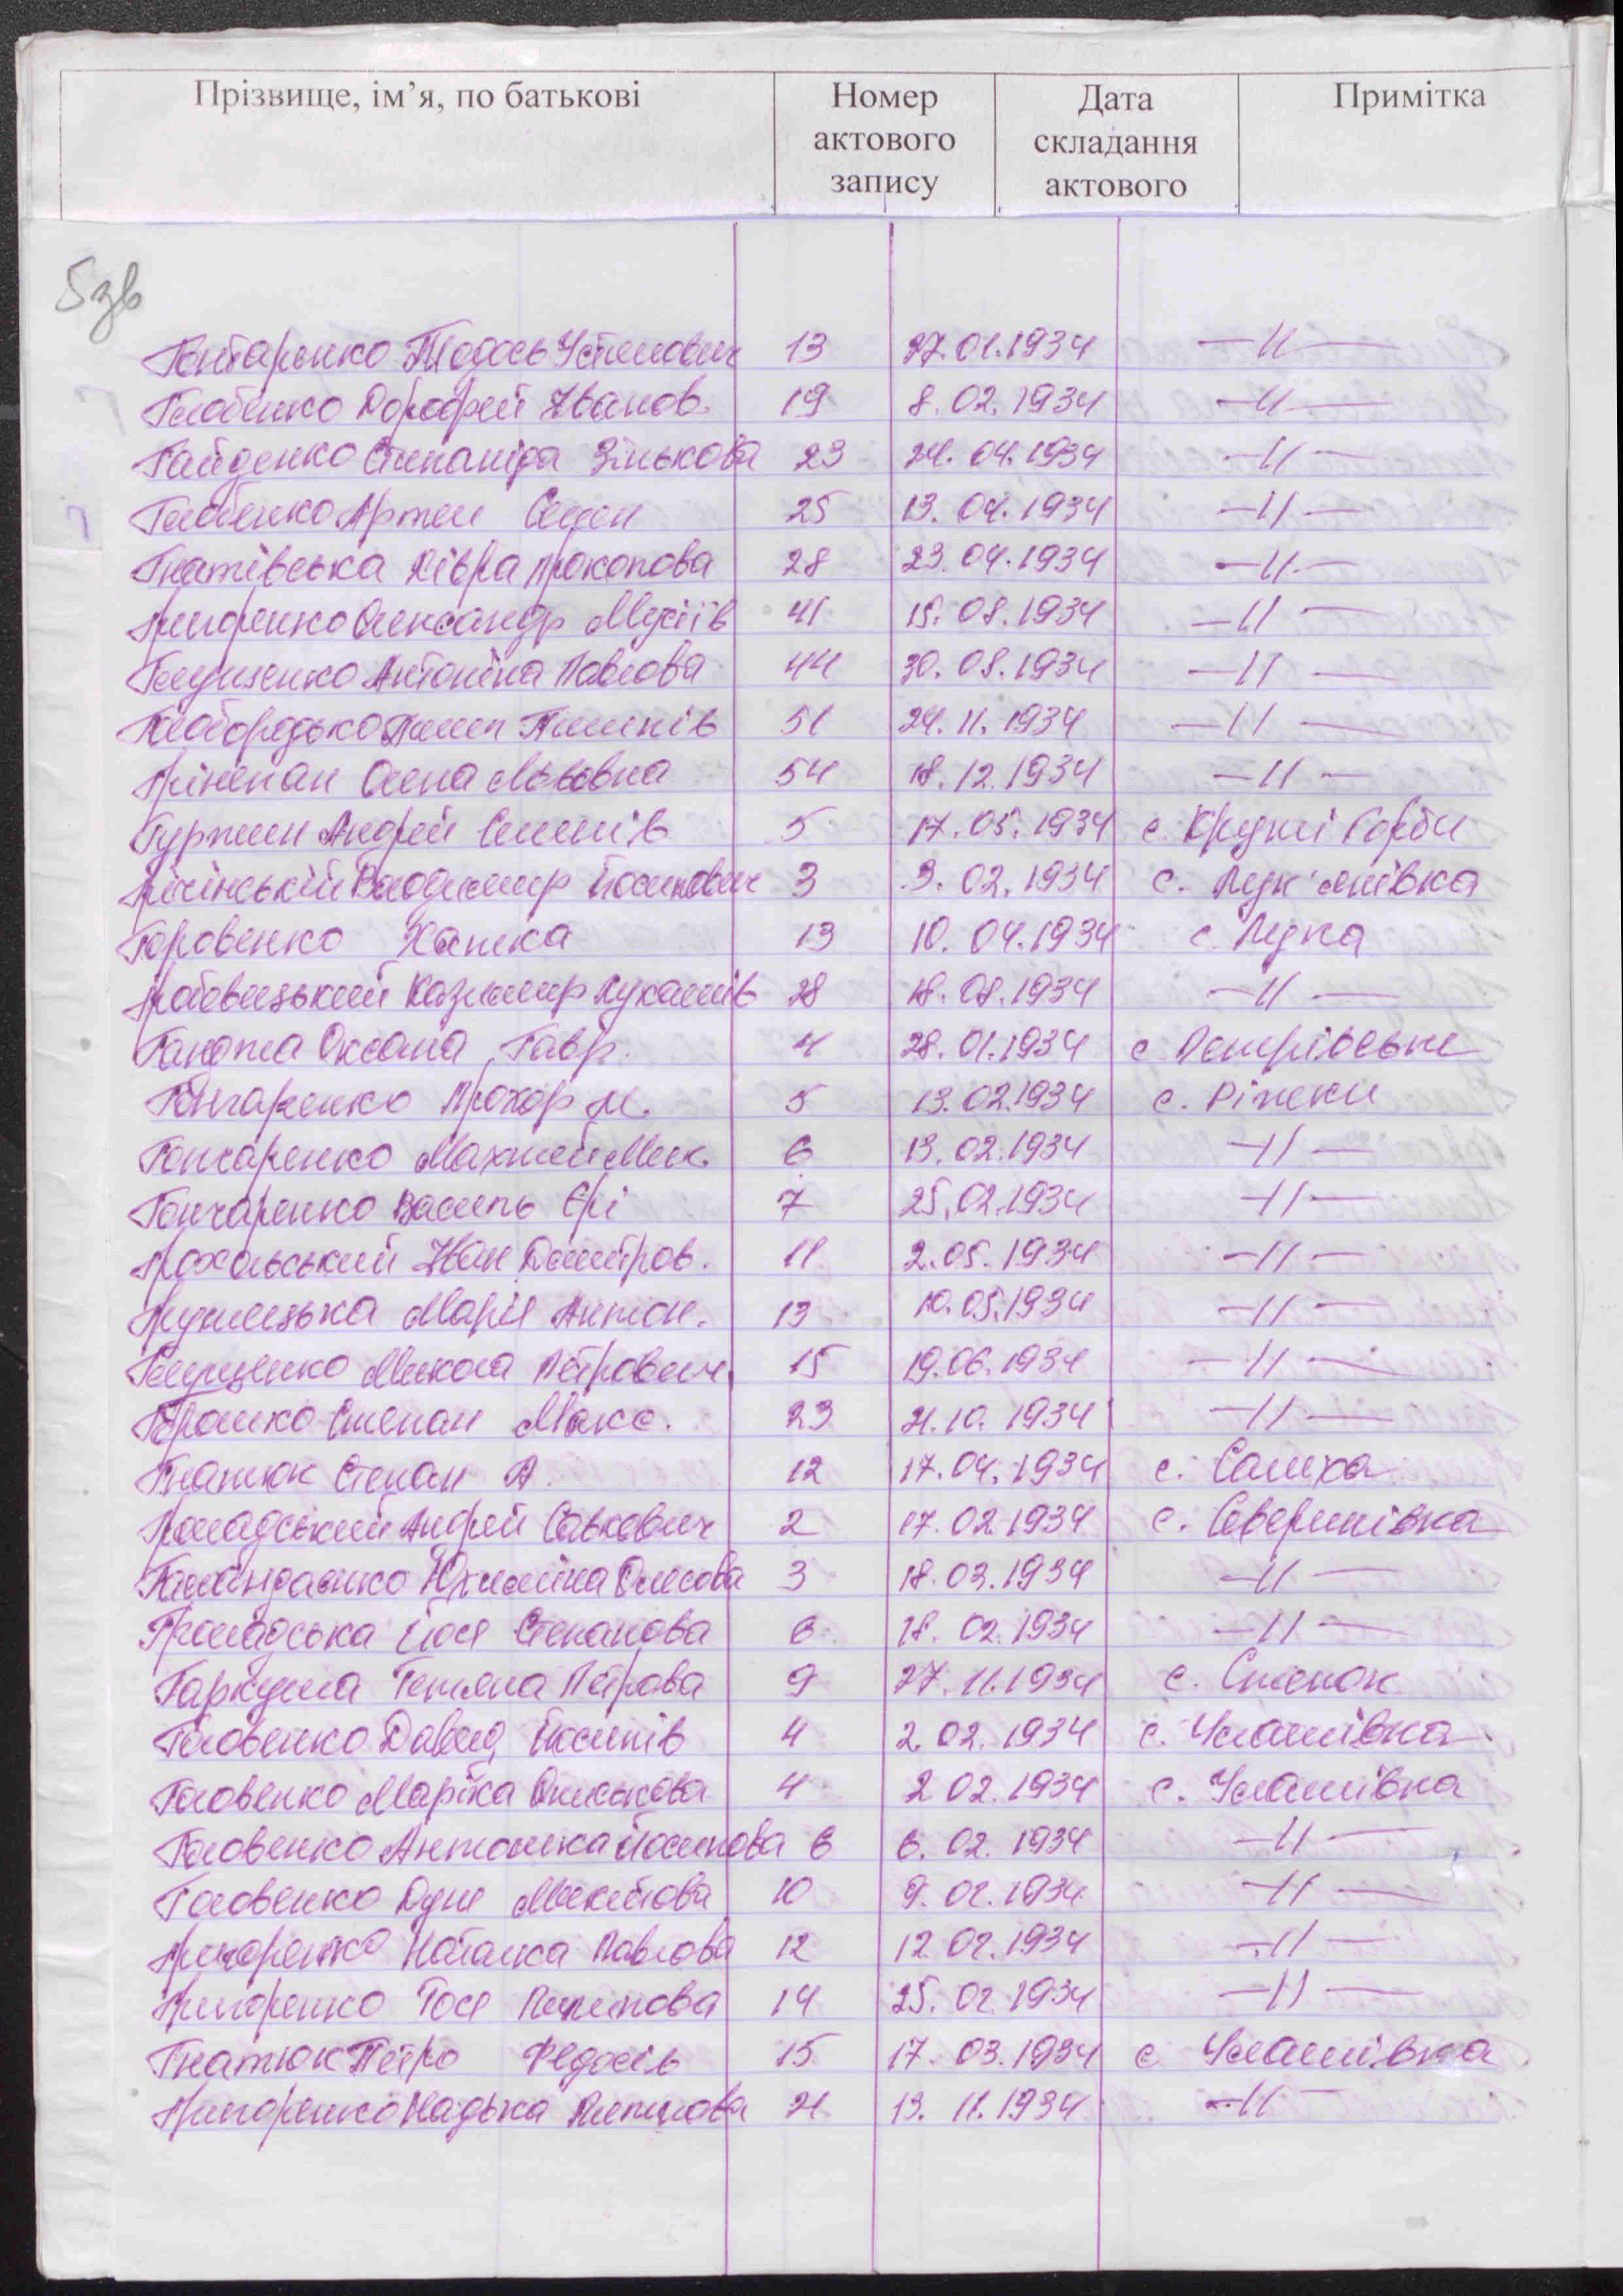 Прізвище, ім’я, по батькові Номер актового запису Дата складання актового Примітка
5зв
Гонтаренко Тодось Устимович 13 27.01.1934 —II—
Голобенко Дорофей Іванов. 19 8.02.1934 —II—
Гайденко Степаніда Зінькова 23 24.04.1934 —II—
Голобенко Артем Семен 25 13.04.1934 —II—
Гнатівська Дівра Прокопова 28 23.04.1934 —II—
Григоренко Олександр Мусіїв 41 15.08.1934 —II—
Галущенко Антоніна Павлова 44 30.08.1934 —II—
Голобородько Пилип Пилипів 51 24.11.1934 —II—
Олена Львовна 54 18.12.1934 —II—
Гуржин Андрей Семенів 5 17.05.1934 с. Круті Горби
Володимир Йосипович 3 3.02.1934 с. Лук'янівка
Горовенко Ханка 13 10.04.1934 с. Лука
Казимир Лукашів 28 18.08.1934 —II—
Ганджа Оксана Гавр. 4 28.01.1934 с Петрівське
Гончаренко Прохор М. 5 13.02.1934 с. Ріжки
Гончаренко Махтей Мик. 6 13.02.1934 —II—
Гончаренко Василь Єрі 7 25.02.1934 —II—
Грохольський Іван Дмитров. 11 2.05.1934 —II—
Марія Антон. 13 10.05.1934 —II—
Галущенко Микола Петрович 15 19.06.1934 —II—
Громко Степан Макс. 23 21.10.1934 —II—
Гнатюк Степан А. 12 17.04.1934 с. Салиха
Громадський Андрей Савкович 2 17.02.1934 с. Северинівка
Юхимина Олесова 3 18.03.1934 —II—
Громадська Йося Степанова 6 18.02.1934 —II—
Гаркуша Тетяна Петрова 9 27.11.1934 с. Степок
Головенко Давид Йосипів 4 2.02.1934 с. Улашівка
Головенко Марійка Ониськова 4 2 02.1934 с. Улашівка
Головенко Антонька Йосипова 6 6.02.1934 —II—
Головенко Дуня Микитова 10 9.02.1934 —II—
Григоренко Наталка Павлова 12 12.02.1934 —II—
Григоренко Тося Пилипова 14 25.02.1934 —II—
Гнатюк Петро Федосів 15 17.03.1934 с Улашівка
Григоренко Надька Пилипова 21 13.11.1934 —II—